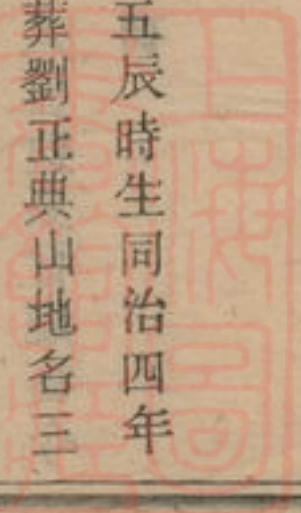 五辰時生同治四年
葬劉正典山地名三